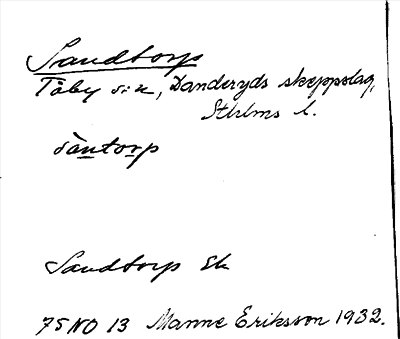 Sandtorp
Täby sn, Danderyds skeppslag,
Sthlms l.
sàntorp
Sandtorp Ek
75 NO 13 Manne Eriksson 1932.